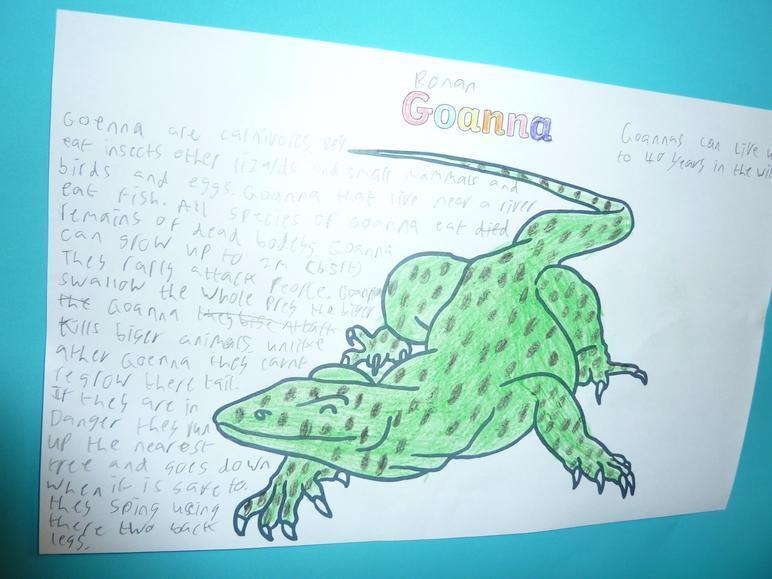 Ronan
Goanna
Goenna are carnivores eat
eat insects other lizards and small mammals and
birds and eggs. Goanna that live near a river
eat fish. All species of Goanna eat died
remains of dead bodeys. Goanna
can grow up to 2m (6.5ft)
They rarly attack People. Goanna
swallow the whole Prey the biger
the Goanna they bise Attack
Kills biger animals unlike
other Goenna they carnt
regrow there tail.
If they are in
Danger they run
up the nearest
tree and goes down
when it is safe to.
they sping using
there two back
legs.
Goannas can live u
to 40 years in the wil